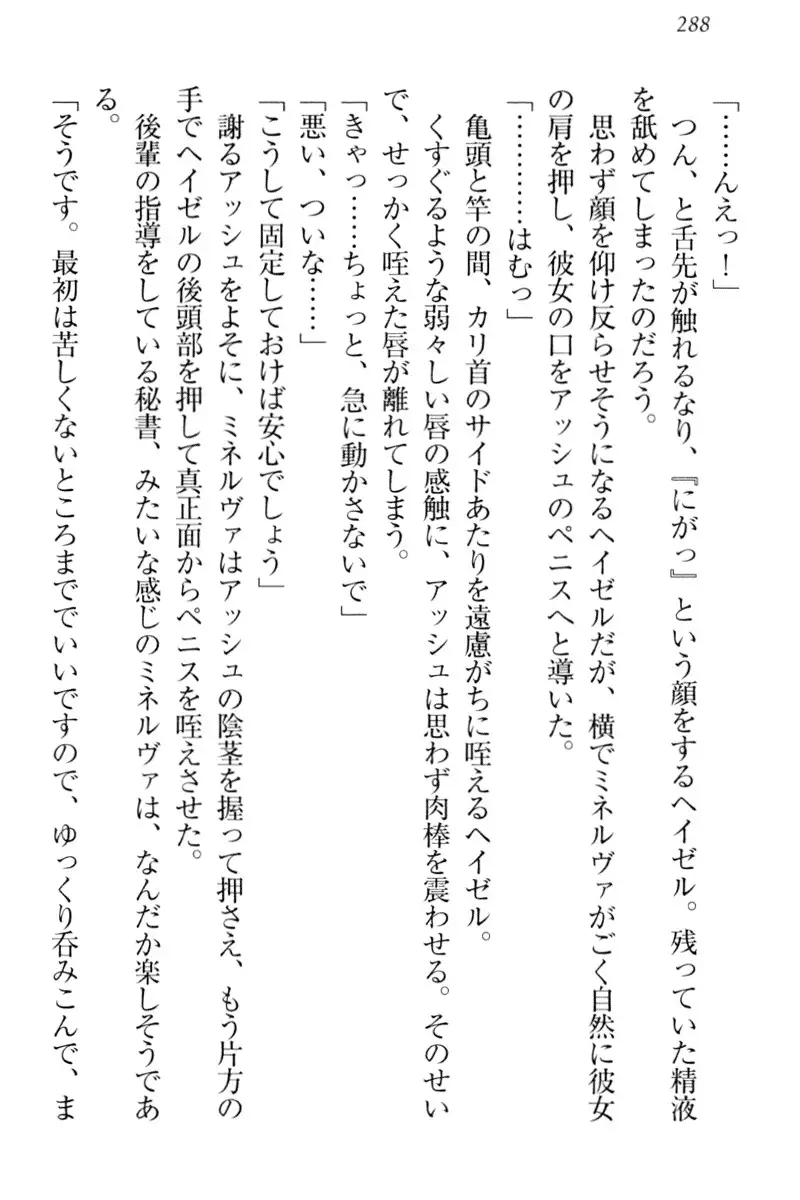 288
「……んえっ！」
つん、と舌先が触れるなり、『にがっ』という顔をするヘイゼル。残っていた精液
を舐めてしまったのだろう。
思わず顔を仰け反らせそうになるヘイゼルだが、横でミネルヴァがごく自然に彼女
の肩を押し、彼女の口をアッシュのペニスへと導いた。
「…………はむっ」
亀頭と竿の間、カリ首のサイドあたりを遠慮がちに咥えるヘイゼル。
くすぐるような弱々しい唇の感触に、アッシュは思わず肉棒を震わせる。そのせい
で、せっかく咥えた唇が離れてしまう。
「きゃっ……ちょっと、急に動かさないで」
「悪い、ついな……」
「こうして固定しておけば安心でしょう」
謝るアッシュをよそに、ミネルヴァはアッシュの陰茎を握って押さえ、もう片方の
手でヘイゼルの後頭部を押して真正面からペニスを咥えさせた。
後輩の指導をしている秘書、みたいな感じのミネルヴァは、なんだか楽しそうであ
る。
「そうです。最初は苦しくないところまででいいですので、ゆっくり呑みこんで、ま